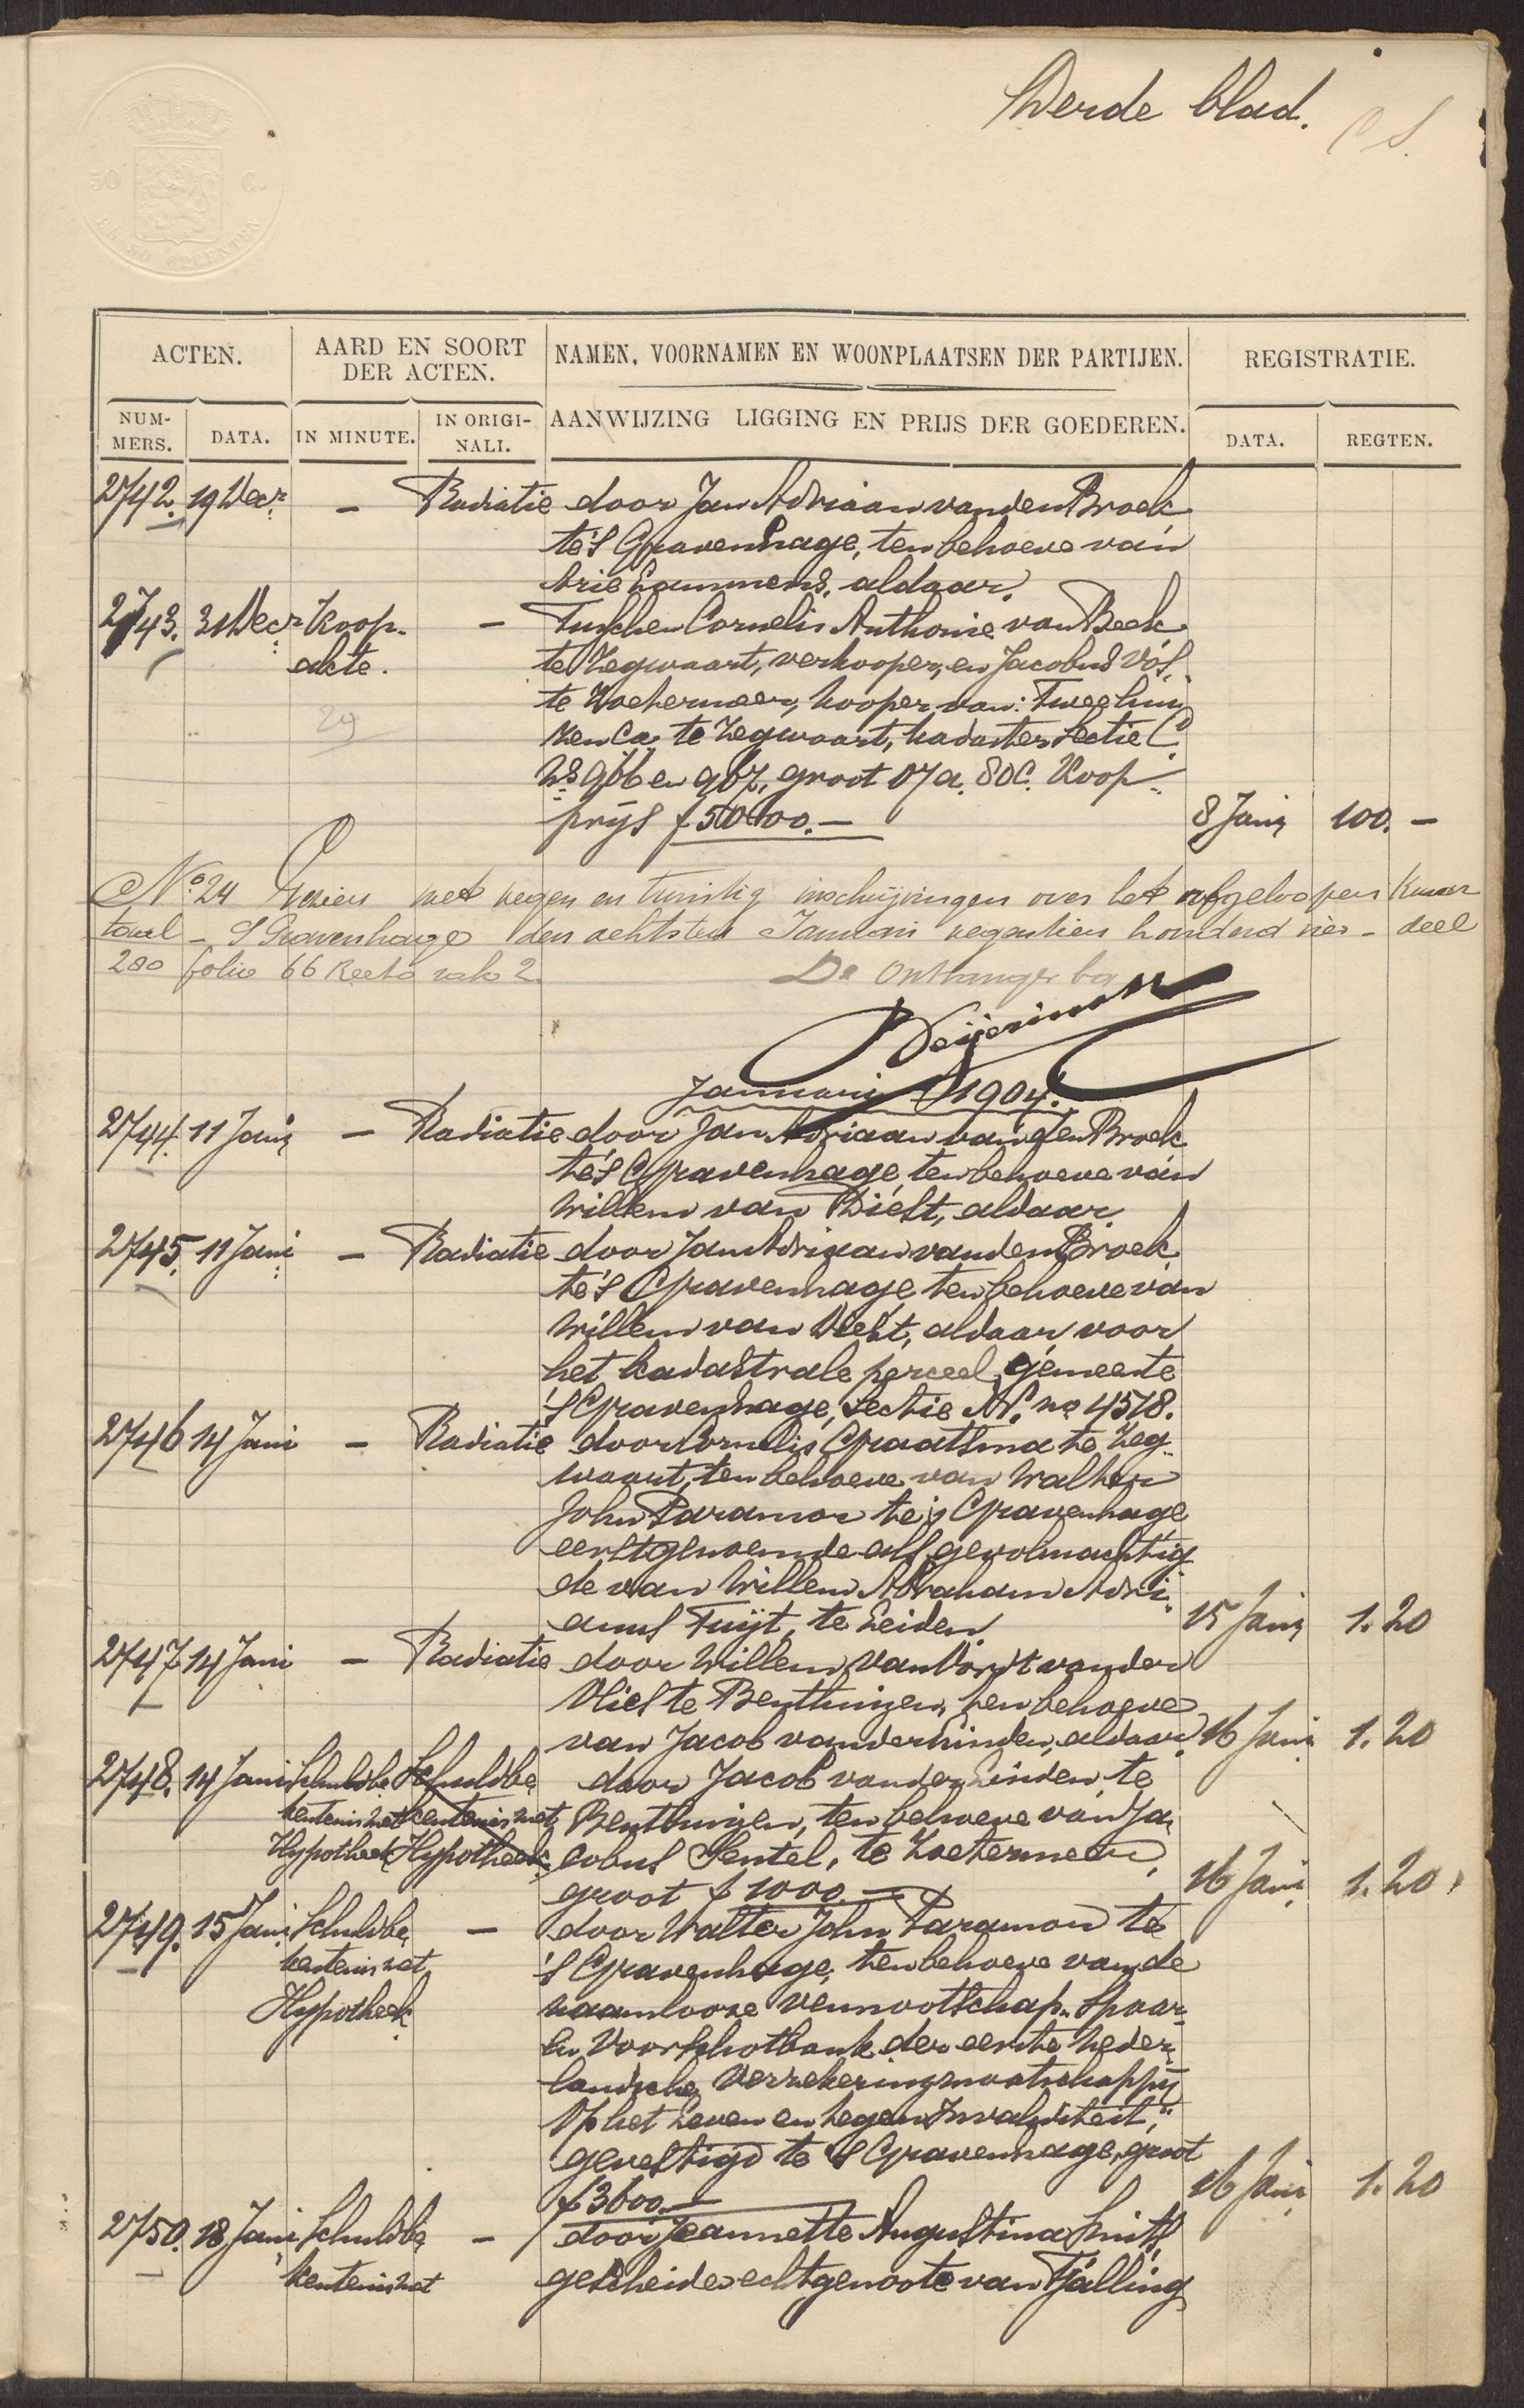 Derde blad.
50 C.
EN 50 OPCENTEN
ACTEN.
AARD EN SOORT
DER ACTEN.
NAMEN, VOORNAMEN EN WOONPLAATSEN DER PARTIJEN.
REGISTRATIE.
NUM-
MERS.
DATA.
IN MINUTE.
IN ORIGI-
NALI.
AANWIJZING LIGGING EN PRIJS DER GOEDEREN.
DATA.
REGTEN.
2742. 19 Decr. – Radiatie door Jan Adriaan van den Broek
te 's Gravenhage, ten behoeve van
Arie Lammens, aldaar.
2743. 31 Decr. Koop- – Tusschen Cornelis Anthonie van Beek
akte. te Zegwaart, verkooper, en Jacobus Vos,
te Zoetermeer, kooper van: Twee hui
29
zen Ca. te Zegwaart, kadaster Sectie C.
Ns. 966 en 967, groot 07 a. 80 C. Koop-
prijs f 5000.– 8 Jani 100.–
No. 24 Gezien met negen en twintig inschrijvingen over het afgeloopen kwar
taal – 's Gravenhage den achtsten Januari negentien honderd vier – deel
280 folio 66 Recto vak 2. De Ontvanger
Januari 1904.
2744. 11 Jani – Radiatie door Jan Adriaan van den Broek
te 's Gravenhage, ten behoeve van
Willem van Diest, aldaar.
2745. 11 Jani – Radiatie door Jan Adriaan van den Broek
te 's Gravenhage, ten behoeve van
Willem van Diest, aldaar, voor
het kadastrale perceel, gemeente
's Gravenhage, Sectie no 4578.
2746 14 Jani – Radiatie door Cornelis Graatsma te Zeg-
waart, ten behoeve van Walter
John Paramor te 's Gravenhage
eerstgenoemde als gevolmachtig
de van Willem Abraham Adri-
anus Tuijt, te Leiden. 15 Jani 1.20
2747 14 Jani – Radiatie door Willem van Vordt van der
Vlies te Benthuizen, ten behoeve
van Jacob van der Linden, aldaar. 16 Jani 1.20
2748. 14 Jani Schuldbe Schuldbe door Jacob van der Linden, te
kentenis met kentenis met Benthuizen, ten behoeve van Ja
Hypotheek Hypotheek cobus Sentel, te Zoetermeer,
groot f 1000.– 16 Jani 1.20
2749. 15 Jani Schuldbe – door Walter John Paramor te
kentenis met 's Gravenhage, ten behoeve van de
Hypotheek naamlooze vennootschap „Spaar-
en Voorschotbank der eerste Neder-
landsche Verzekeringmaatschappij
op het Leven en tegen Invaliditeit,"
gevestigd te 's Gravenhage, groot
f 3600.– 16 Jani 1.20
2750. 18 Jani Schuldbe – door Jeannette Augustina Smits,
kentenis met gescheiden echtgenoote van Tjalling